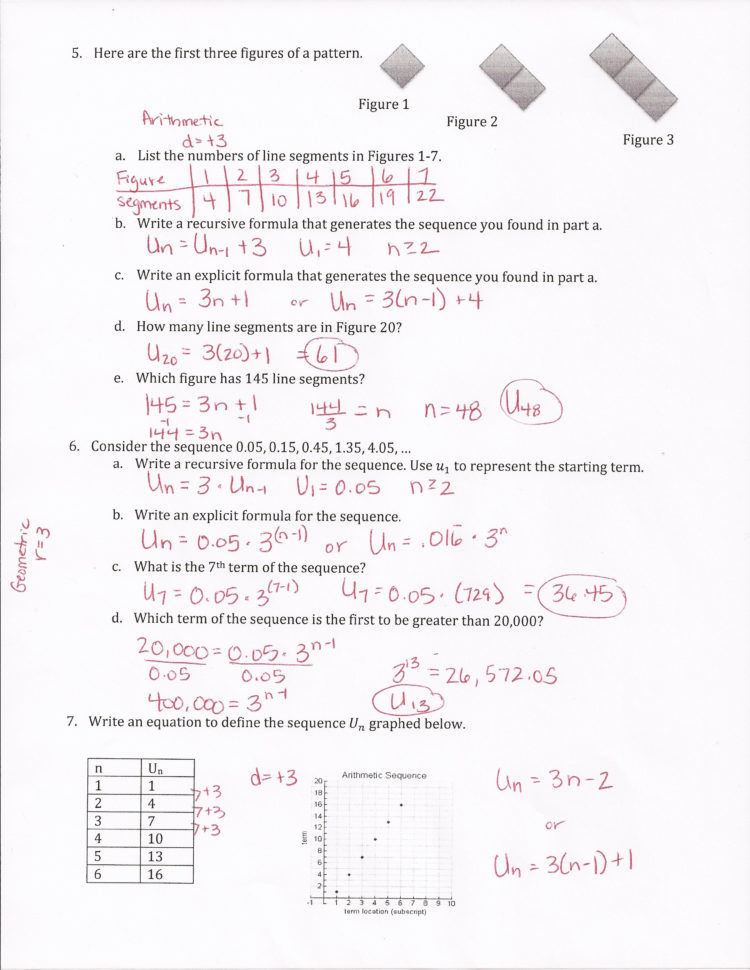 5. Here are the first three figures of a pattern.
Figure 1
Figure 2
Figure 3
Arithmetic
d=+3
a. List the numbers of line segments in Figures 1-7.
Figure | 1 | 2 | 3 | 4 | 5 | 6 | 7
Segments | 4 | 7 | 10 | 13 | 16 | 19 | 22
b. Write a recursive formula that generates the sequence you found in part a.
Un = Un-1 +3 U1=4 n≥2
c. Write an explicit formula that generates the sequence you found in part a.
Un = 3n+1 or Un = 3(n-1) +4
d. How many line segments are in Figure 20?
U20 = 3(20)+1 = 61
e. Which figure has 145 line segments?
145 = 3n + 1 144/3 = n n=48 U48
-1 -1
144 = 3n
6. Consider the sequence 0.05, 0.15, 0.45, 1.35, 4.05, ...
a. Write a recursive formula for the sequence. Use u1 to represent the starting term.
Un = 3 · Un-1 U1 = 0.05 n≥2
Geometric
r=3
b. Write an explicit formula for the sequence.
Un = 0.05 · 3^(n-1) or Un = .016̅ · 3^n
c. What is the 7th term of the sequence?
U7 = 0.05 · 3^(7-1) U7 = 0.05 · (729) = 36.45
d. Which term of the sequence is the first to be greater than 20,000?
20,000 = 0.05 · 3^n-1
0.05 0.05
3^13 = 26,572.05
400,000 = 3^n-1
U13
7. Write an equation to define the sequence Un graphed below.
n | Un
1 | 1
2 | 4
3 | 7
4 | 10
5 | 13
6 | 16
+3
+3
+3
d=+3
Arithmetic Sequence
20
18
16
14
12
10
8
6
4
2
term
-1 1 2 3 4 5 6 7 8 9 10
term location (subscript)
Un = 3n-2
or
Un = 3(n-1)+1